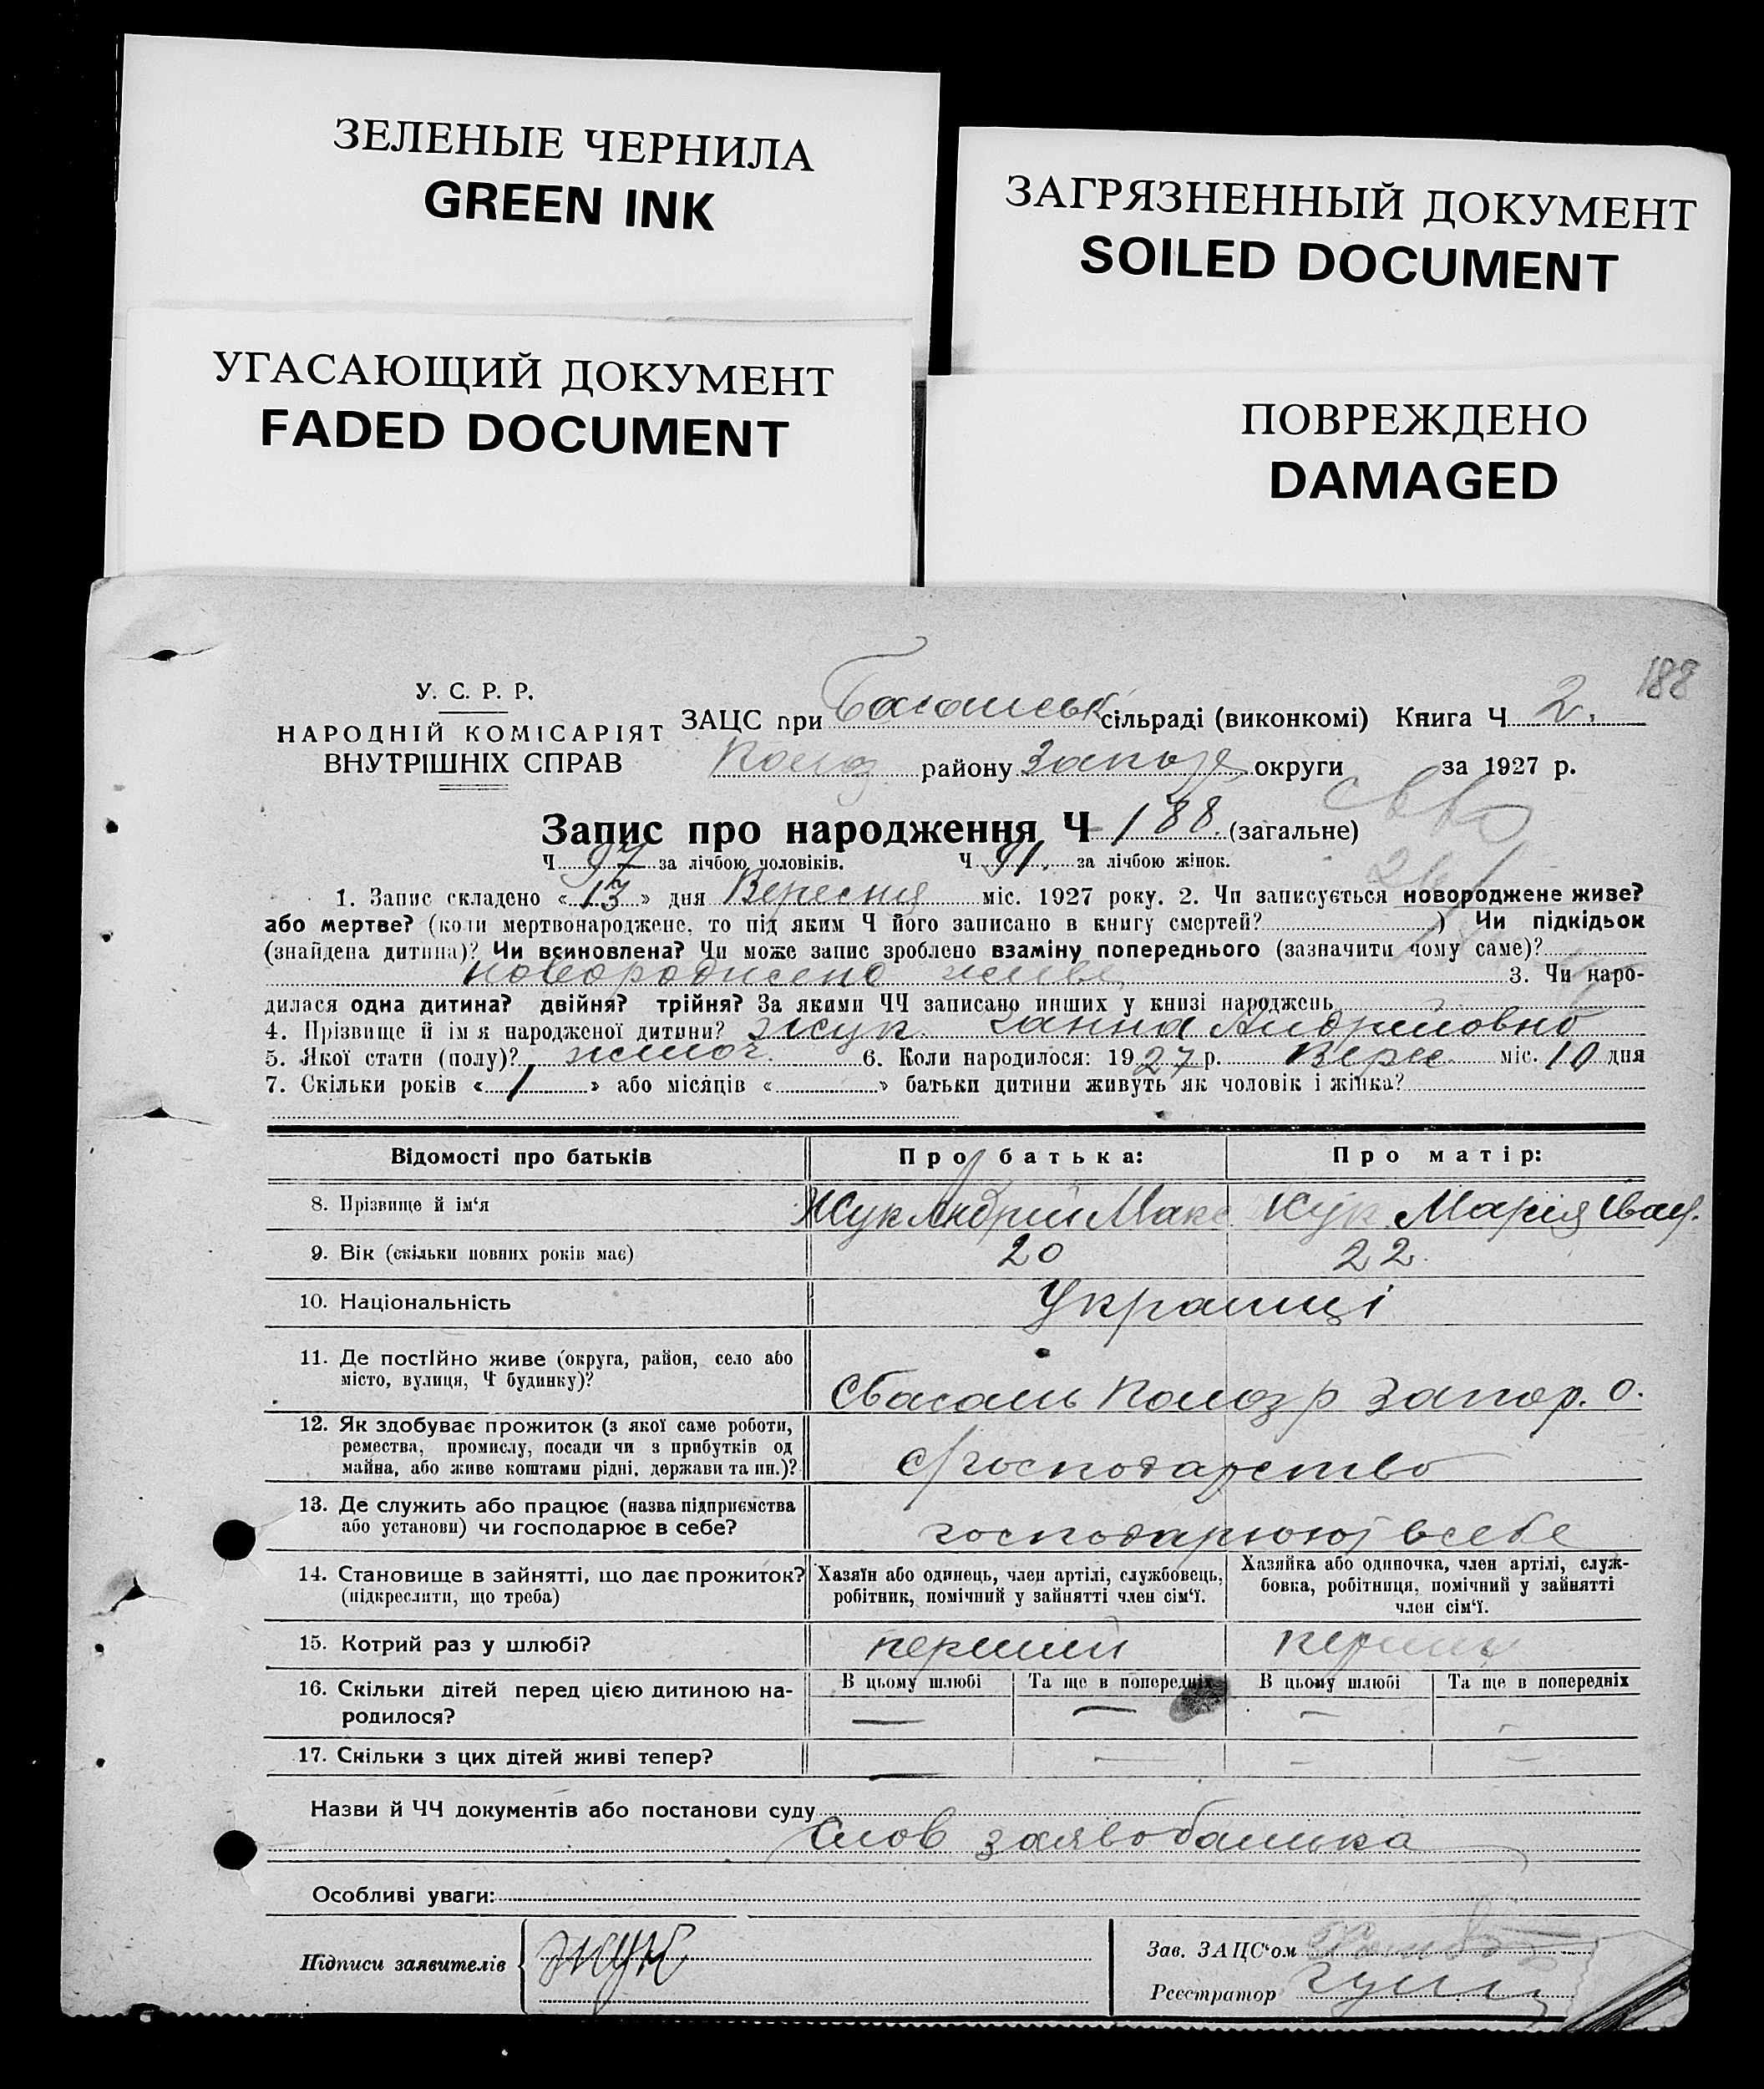 ЗЕЛЕНЫЕ ЧЕРНИЛА
GREEN INK
ЗАГРЯЗНЕННЫЙ ДОКУМЕНТ
SOILED DOCUMENT
УГАСАЮЩИЙ ДОКУМЕНТ
FADED DOCUMENT
ПОВРЕЖДЕНО
DAMAGED
188
У. С. Р. Р.
НАРОДНІЙ КОМІСАРІЯТ
ВНУТРІШНІХ СПРАВ
ЗАЦС при Басанськ сільраді (виконкомі) Книга Ч 2.
Полог району Запоріж округи за 1927 р.
Запис про народження Ч 188. (загальне)
Ч 97 за лічбою чоловіків. Ч 91. за лічбою жінок.
1. Запис складено «13» дня Вересня міс. 1927 року. 2. Чи записується новороджене живе?
або мертве? (коли мертвонароджене, то під яким Ч його записано в книгу смертей? ) Чи підкідьок
(знайдена дитина)? Чи всиновлена? Чи може запис зроблено взаміну попереднього (зазначити чому саме)?
новороджено живе 3. Чи наро-
дилася одна дитина? двійня? трійня? За якими ЧЧ записано инших у книзі народжень
4. Прізвище й ім я народженої дитини? Жук Ганна Андрійовно
5. Якої стати (полу)? жиноч. 6. Коли народилося: 1927 р. Вере міс. 10 дня
7. Скільки років «1» або місяців « » батьки дитини живуть як чоловік і жінка?
Відомості про батьків Про батька: Про матір:
8. Прізвище й ім‘я Жук Андрій Макс Жук Марія Іван.
9. Вік (скільки повних років має) 20 22.
10. Національність Украинці
11. Де постійно живе (округа, район, село або
місто, вулиця, Ч будинку)?
с Басань Полог р Запор. о.
12. Як здобуває прожиток (з якої саме роботи,
ремества, промислу, посади чи з прибутків од
майна, або живе коштами рідні, держави та ин.)?
с/господарство
13. Де служить або працює (назва підприємства
або установи) чи господарює в себе?
господарюют всебе
14. Становище в зайнятті, що дає прожиток?
(підкреслити, що треба)
Хазяїн або одинець, член артілі, службовець,
робітник, помічний у зайнятті член сім‘ї.
Хазяйка або одиночка, член артілі, служ-
бовка, робітниця, помічний у зайнятті
член сім‘ї.
15. Котрий раз у шлюбі? перший перший
16. Скільки дітей перед цією дитиною на-
родилося?
В цьому шлюбі Та ще в попередніх В цьому шлюбі Та ще в попередніх
— — — —
17. Скільки з цих дітей живі тепер? — — — —
Назви й ЧЧ документів або постанови суду
Слов заявобатька
Особливі уваги:
Підписи заявителів Жук
Зав. ЗАЦС‘ом
Реєстратор